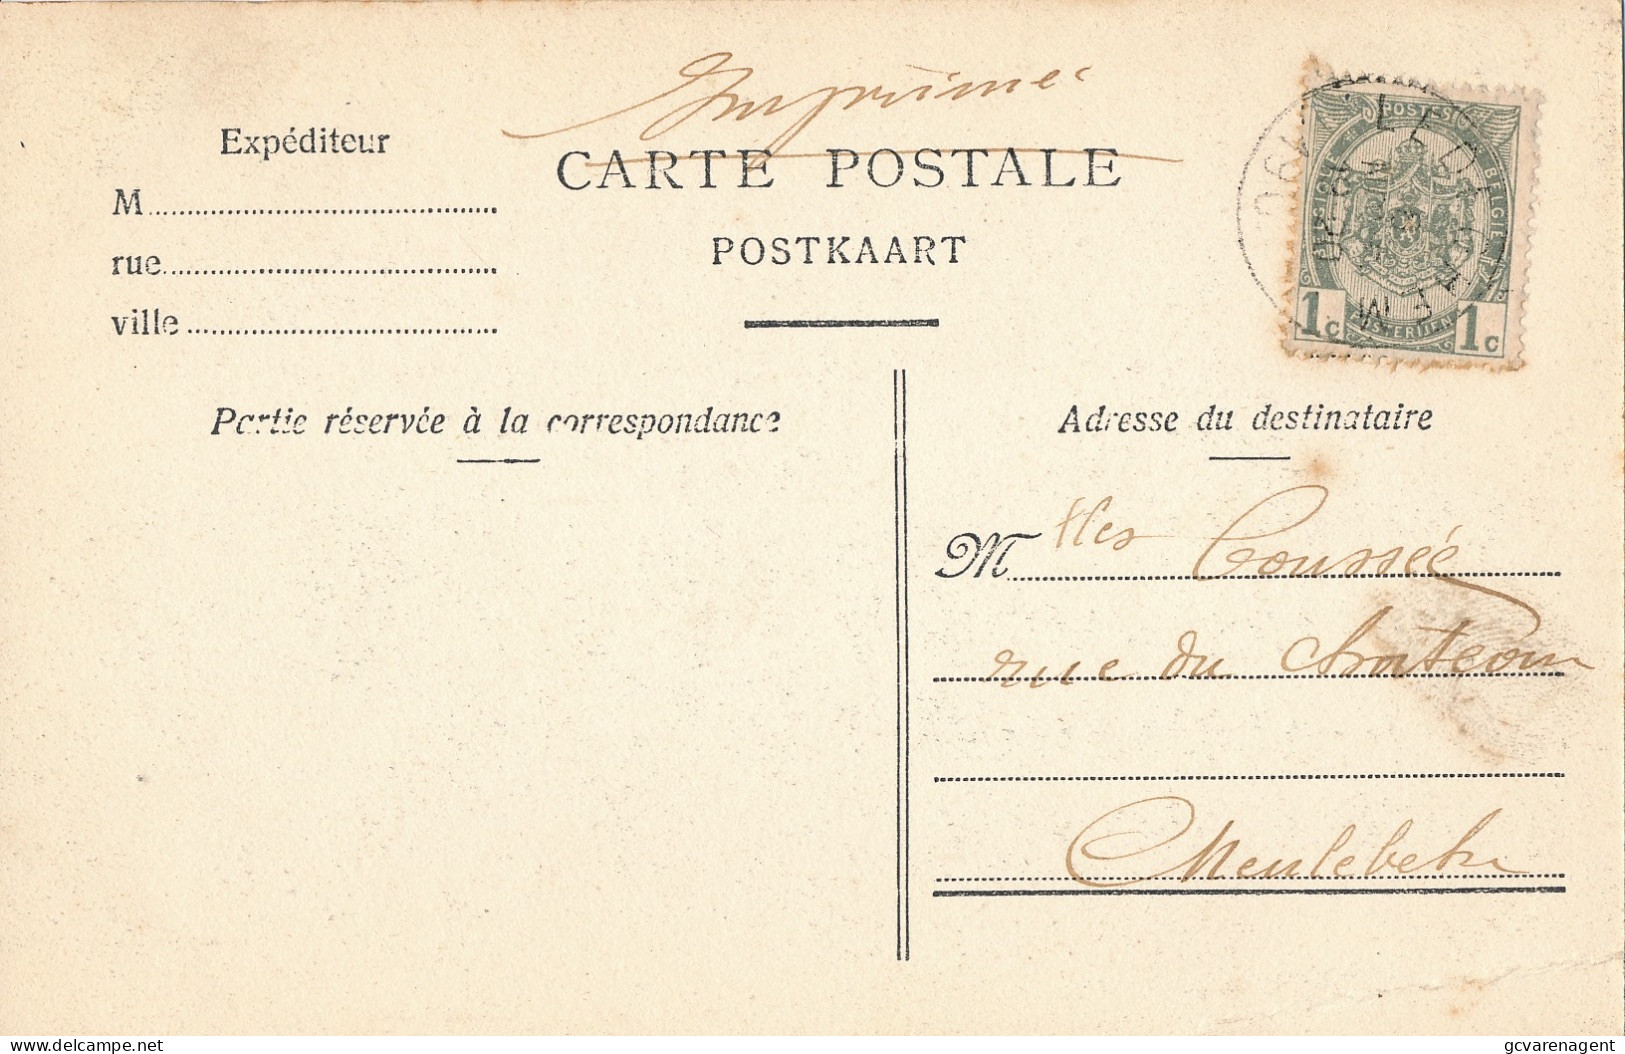 Imprimé
Expéditeur
CARTE POSTALE
M
POSTKAART
rue
ville
POSTES
BELGIQUE
BELGIË
POSTERIJEN
1c 1c
LEDEGEM
Partie réservée à la correspondance
Adresse du destinataire
Mlles Coussée
rue du
Meulebeke
delcampe.net
gcvarenagent